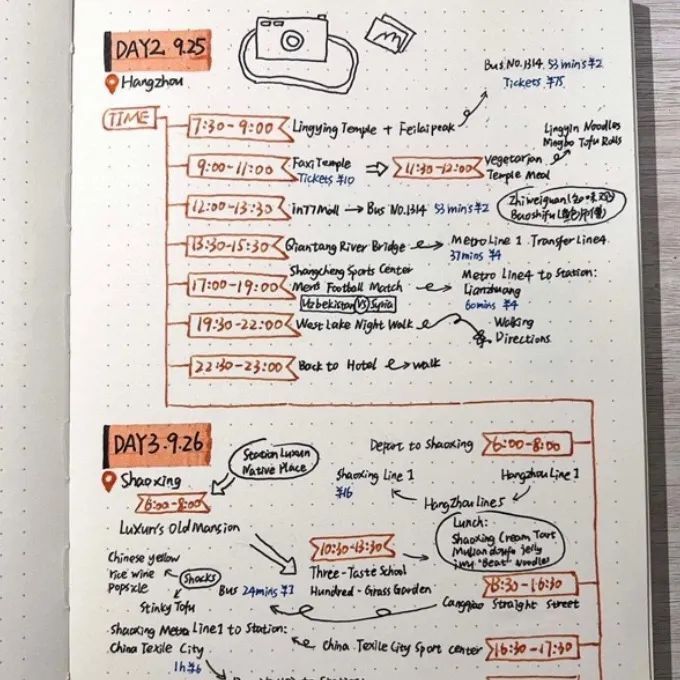 DAY2 9.25
Hangzhou
Bus No.1314 53 mins ¥2
Tickets ¥75
TIME
7:30-9:00 Lingying Temple + Feilaipeak
Lingyin Noodles
Ningbo Tofu Rolls
9:00-11:00 Faxi Temple
Tickets ¥10
11:30-12:00 Vegetarian
Temple Meal
12:00-13:30 in77 Mall → Bus No.1314 53 mins ¥2
Zhiweiguan(知味观)
Baoshifu(鲍师傅)
13:30-15:30 Qiantang River Bridge → Metro Line 1 Transfer Line4
37mins ¥4
17:00-19:00 Shangcheng Sports Center
Men's Football Match
Uzbekistan VS Syria
Metro Line4 to Station:
Lianzhuang
60mins ¥4
19:30-22:00 West Lake Night Walk
Walking
Directions
22:30-23:00 Back to Hotel → walk
DAY3.9.26
Shaoxing
6:00-8:00
Station Luxun
Native Place
Depart to Shaoxing 6:00-8:00
Hangzhou Line 1
HangZhou Line5
Shaoxing Line 1
¥16
Luxun's Old Mansion
10:30-13:30
Three-Taste School
Hundred-Grass Garden
Lunch:
Shaoxing Cream Tart
Mulian doufu jelly
"Beat" Noodles
Chinese yellow
rice wine
popsicle
Snacks
Stinky Tofu
-16:30
Cangqiao Straight Street
Bus 24mins ¥1
Shaoxing Metro Line1 to Station:
China Texile City
1h ¥6
China Texile City Sport center 16:30-17:30